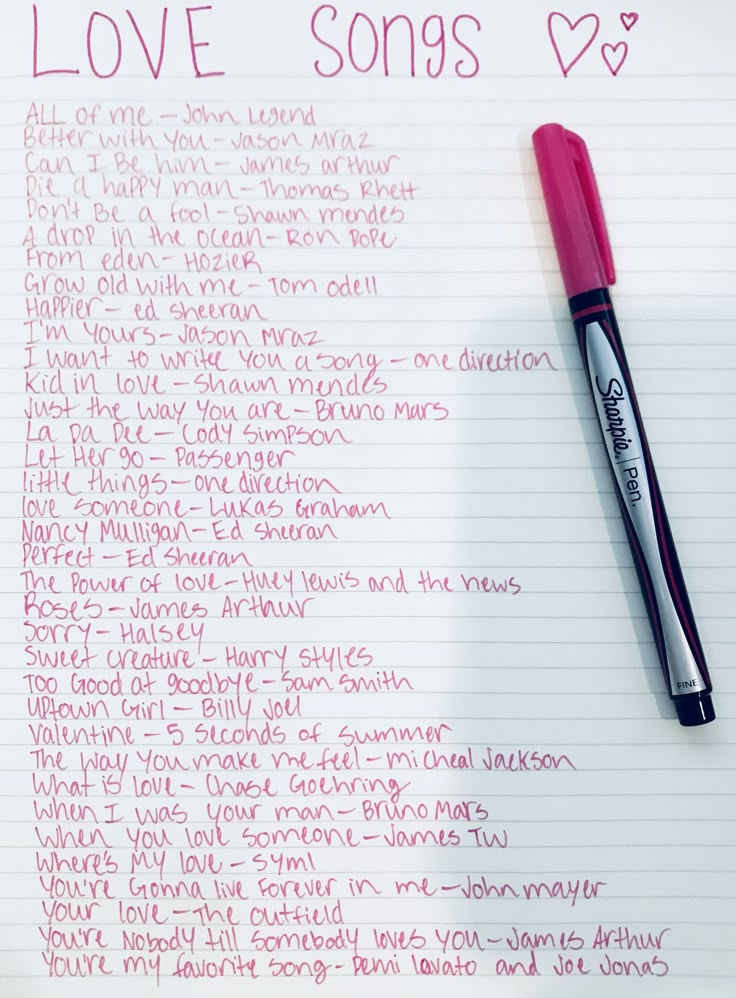 LOVE Songs
ALL OF me - John Legend
Better with you - Jason Mraz
Can I Be him - James arthur
Die a happy man - Thomas Rhett
Don't Be a fool - Shawn mendes
A drop in the ocean - Ron Pope
From eden - Hozier
Grow old with me - Tom odell
Happier - ed sheeran
I'm Yours - Jason Mraz
I want to write you a song - one direction
Kid in love - Shawn mendes
Just the way you are - Bruno Mars
La Da Dee - Cody Simpson
Let Her go - Passenger
little things - one direction
love someone - Lukas Graham
Nancy Mulligan - Ed sheeran
Perfect - Ed Sheeran
The Power of love - Huey lewis and the news
Roses - James Arthur
Sorry - Halsey
Sweet creature - Harry styles
Too Good at goodbye - Sam Smith
Uptown Girl - Billy Joel
Valentine - 5 Seconds of Summer
The way you make me feel - micheal Jackson
What is love - Chase Goehring
When I was your man - Bruno Mars
When you love someone - James TW
Where's My love - syml
You're Gonna live Forever in me - John mayer
Your love - The outfield
You're Nobody till somebody loves you - James Arthur
You're my favorite song - Demi lovato and Joe Jonas
Sharpie. | Pen.
FINE